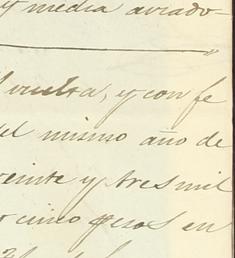 y media aviado-
vuelta, y con fe
el mismo año de
veinte y tres mil
cinco pesos en